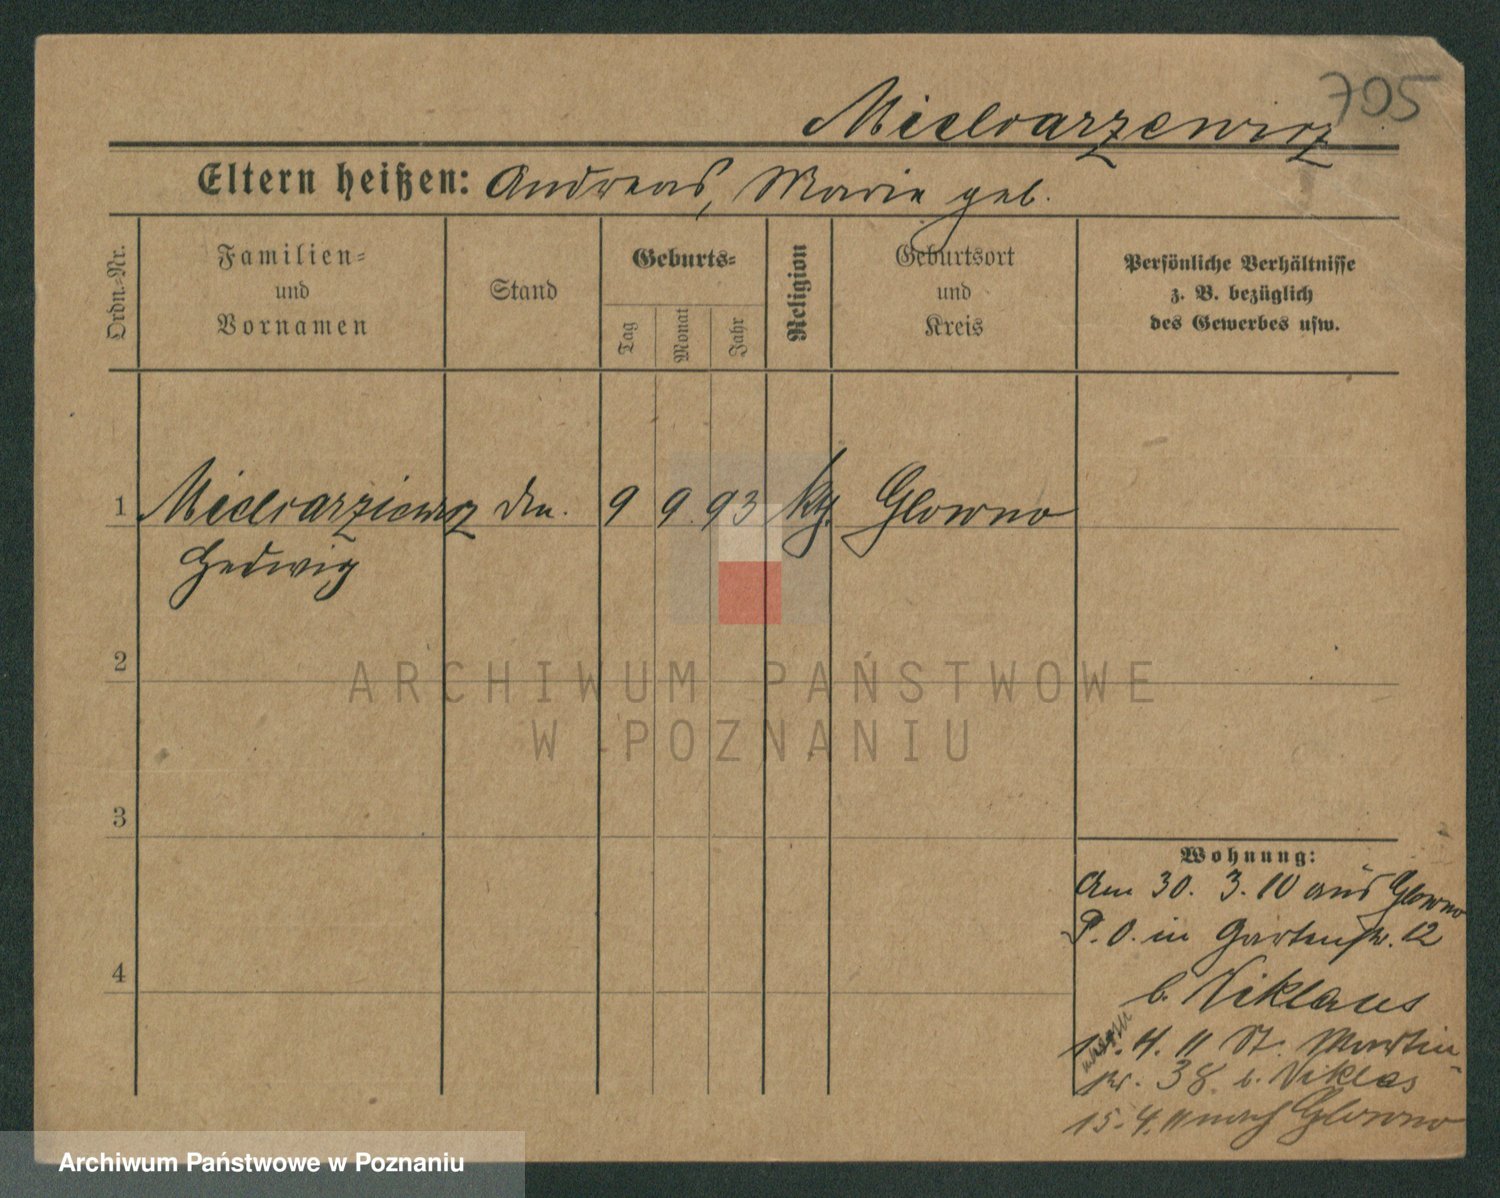 705
Mielcarzewicz
Eltern heißen: Andreas, Marie geb.
Ordn.=Nr.
Familien=
und
Vornamen
Stand
Geburts=
Tag
Monat
Jahr
Religion
Geburtsort
und
Kreis
Persönliche Verhältnisse
z. B. bezüglich
des Gewerbes usw.
1 Mielcarziewicz 9 9. 93 kth. Glowno
Hedwig
2
3
4
Wohnung:
Am 30. 3. 10 aus Glowno
P. O. in Gartenstr. 12
b. Niklaus
15. 4. 11 St. Martin-
str. 38 b. Niklas
15. 4. 11 nach Glowno
ARCHIWUM PAŃSTWOWE
W POZNANIU
Archiwum Państwowe w Poznaniu